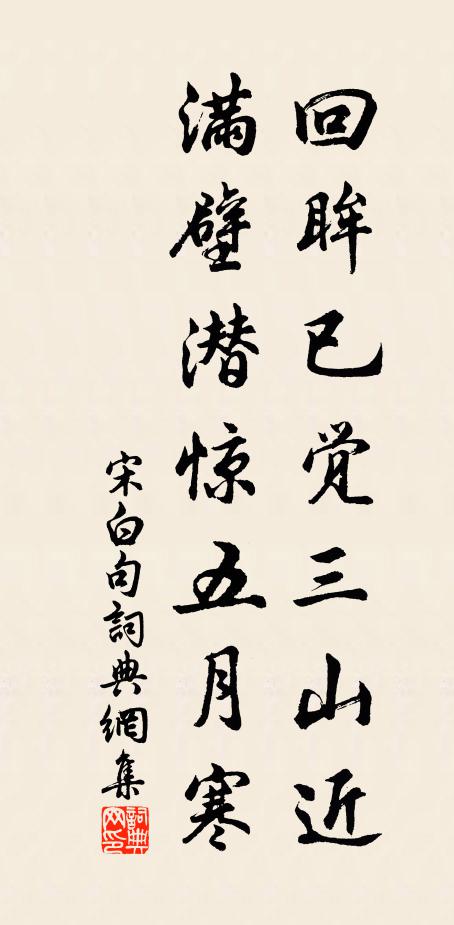 回眸已觉三山近
满壁潜惊五月寒
宋白句詞典網集
詞典网印